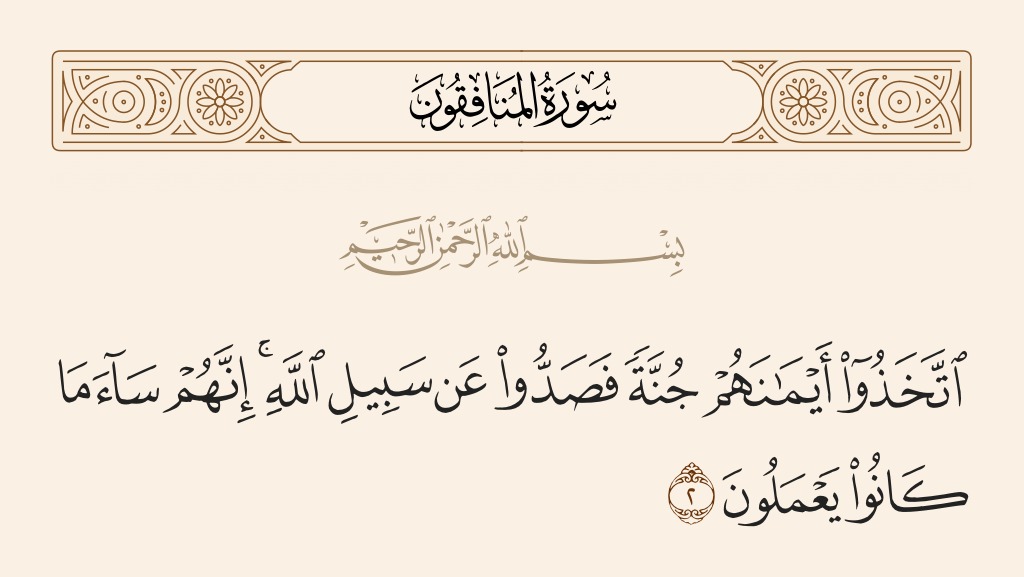 سُورَةُ الْمُنَافِقُونَ
بِسْمِ ٱللَّهِ ٱلرَّحْمَٰنِ ٱلرَّحِيمِ
ٱتَّخَذُوٓا۟ أَيْمَٰنَهُمْ جُنَّةً فَصَدُّوا۟ عَن سَبِيلِ ٱللَّهِ ۚ إِنَّهُمْ سَآءَ مَا
كَانُوا۟ يَعْمَلُونَ ٢